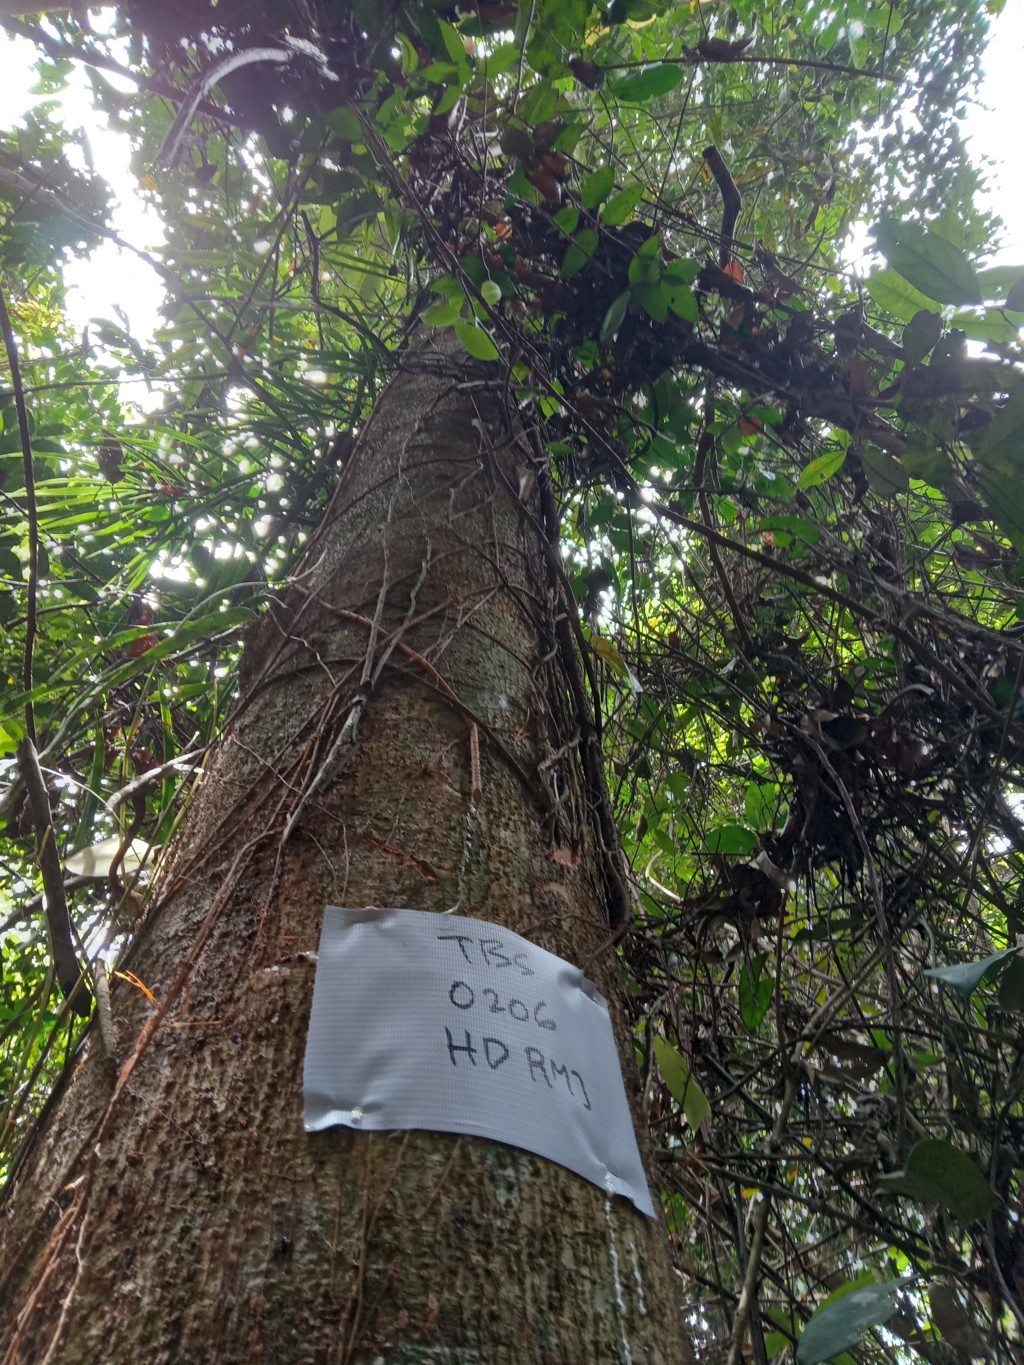 TBS
0206
HD RMJ